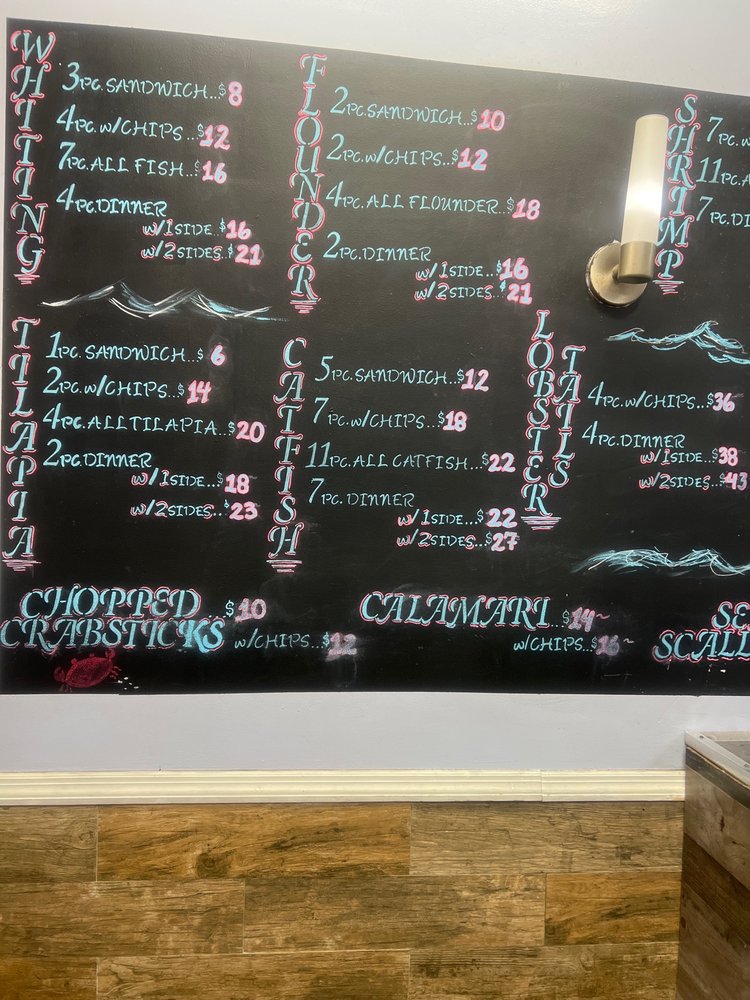 WHITING
3PC. SANDWICH...$8
4PC. W/CHIPS...$12
7PC. ALL FISH...$16
4PC. DINNER
W/1SIDE...$16
W/2SIDES..$21
FLOUNDER
2PC. SANDWICH...$10
2PC. W/CHIPS...$12
4PC. ALL FLOUNDER...$18
2PC. DINNER
W/1SIDE...$16
W/2SIDES..$21
SHRIMP
7PC. W
11PC. A
7PC. DI
TILAPIA
1PC. SANDWICH...$6
2PC. W/CHIPS...$14
4PC. ALL TILAPIA...$20
2PC. DINNER
W/1SIDE...$18
W/2SIDES...$23
CATFISH
5PC. SANDWICH...$12
7PC. W/CHIPS...$18
11PC. ALL CATFISH...$22
7PC. DINNER
W/1SIDE...$22
W/2SIDES...$27
LOBSTER
TAILS
4PC. W/CHIPS...$36
4PC. DINNER
W/1SIDE...$38
W/2SIDES..$43
CHOPPED...$10
CRABSTICKS W/CHIPS...$12
CALAMARI...$14~
W/CHIPS...$16~
SE
SCALL